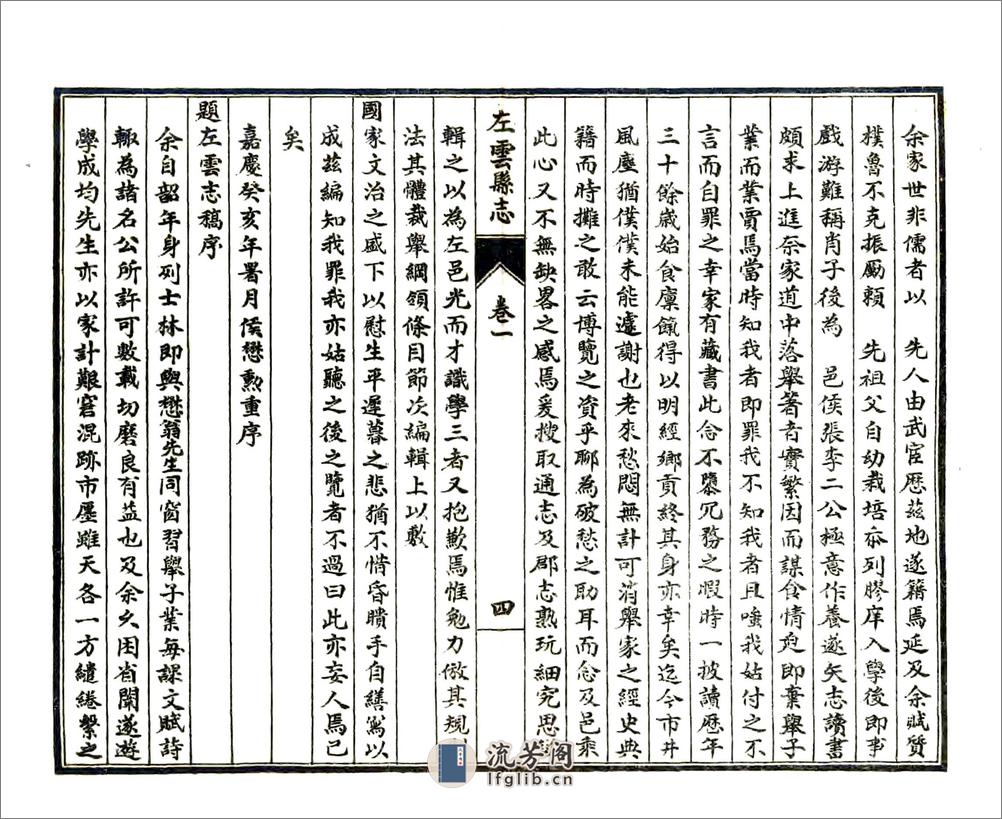 余家世非儒者以　先人由武宦歷茲地遂籍焉延及余賦質
樸魯不克振勵賴　先祖父自幼栽培忝列膠庠入學後即事
戲游難稱肖子後為　邑侯張李二公極意作養遂矢志讀書
頗求上進奈家道中落舉著者實繁因而謀食情迫即棄舉子
業而業賈焉當時知我者即罪我不知我者且嗤我姑付之不
言而自罪之幸家有藏書此念不隳冗務之暇時一披讀歷年
三十餘歲始食廩餼得以明經鄉貢終其身亦幸矣迄今市井
風塵猶僕僕未能遽謝也老來愁悶無計可消舉家之經史典
籍而時攤之敢云博覽之資乎聊為破愁之助耳而念及邑乘
此心又不無缺畧之感焉爰搜取通志及郡志熟玩細究思
左雲縣志
卷一
四
輯之以為左邑光而才識學三者又抱歉焉惟勉力倣其規
法其體裁舉綱領條目節次編輯上以敷
國家文治之盛下以慰生平遲暮之悲猶不惜昏瞶手自繕寫以
成茲編知我罪我亦姑聽之後之覽者不過曰此亦妄人焉已
矣
嘉慶癸亥年署月侯懋勲重序
題左雲志稿序
余自韶年身列士林即與懋翁先生同窗習舉子業每課文賦詩
輙為諸名公所許可數載切磨良有益也及余久困省闈遂遊
學成均先生亦以家計艱窘混跡市廛雖天各一方繾綣繫之
流芳阁
lfglib.cn